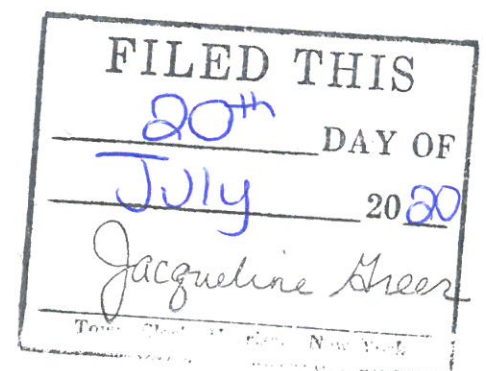 FILED THIS
20th DAY OF
July 2020
Jacqueline Greer
Town Clerk New York